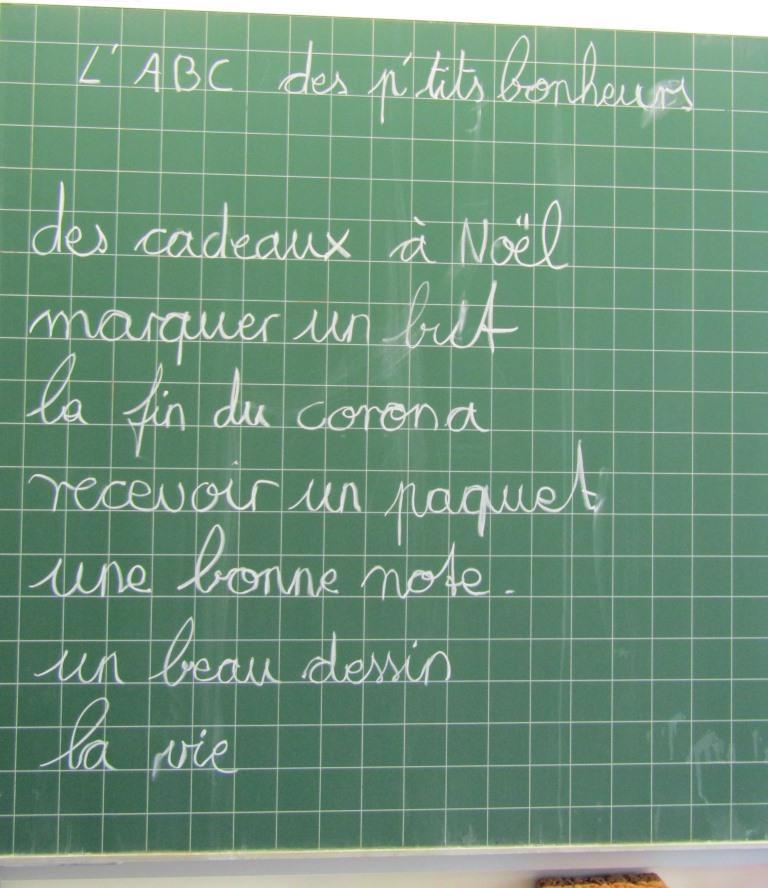 L'ABC des p'tits bonheurs
des cadeaux à Noël
marquer un but
la fin du corona
recevoir un paquet
une bonne note.
un beau dessin
la vie